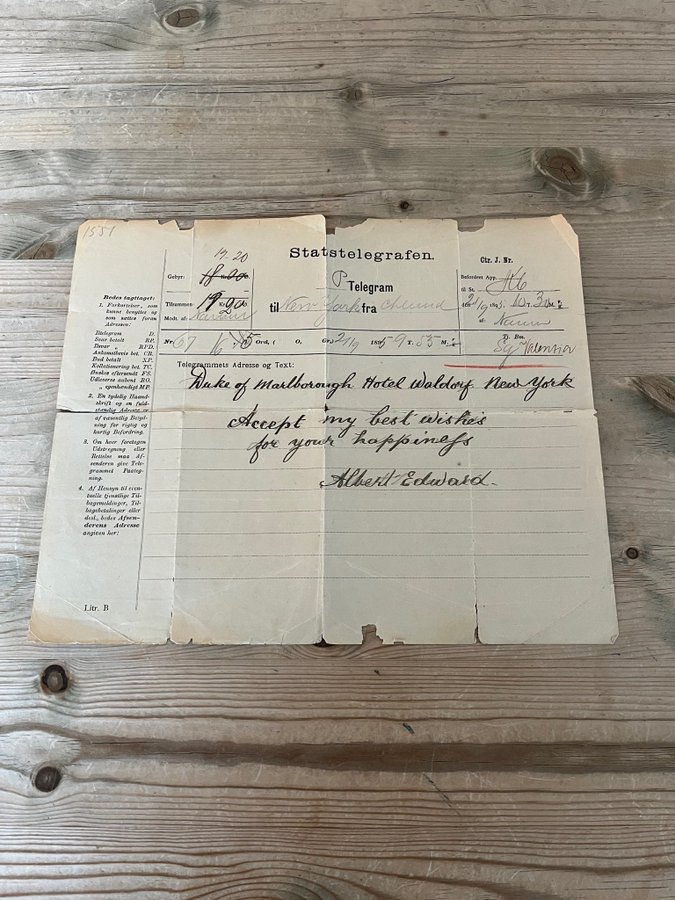 1551
Statstelegrafen.
Ctr. J. Nr.
19.20
Gebyr:
P Telegram
Befordret App.
til St.
Tilsammen
19 20
til New York fra
189
Modt. af:
af:
Nr. 67 15 Ord, ( O. Gr.) 21/9 1895 9 T. 55 M.
Tj. Bem.
Telegrammets Adresse og Text:
Duke of Marlborough Hotel Waldorf New York
Accept my best wishes
for your happiness
Albert Edward.
Bedes iagttaget:
1. Forkortelser, som
kunne benyttes og
som sættes foran
Adressen:
Iltelegram D.
Svar betalt RP.
Ankomstbevis bet. CR.
Bud betalt XP.
Kollationering bet. TC.
Ønskes eftersendt FS.
Udleveres aabent RO.
„ egenhændigt MP.
2. En tydelig Haand-
skrift og en fuld-
stændig Adresse er
af væsentlig Betyd-
ning for rigtig og
hurtig Befordring.
3. Om hver foretagen
Udstregning eller
Rettelse maa Af-
senderen give Tele-
grammet Paateg-
ning.
4. Af Hensyn til even-
tuelle tjenstlige Til-
bagemeldinger, Til-
bagebetalinger eller
desl., bedes Afsen-
derens Adresse
angiven her:
Litr. B